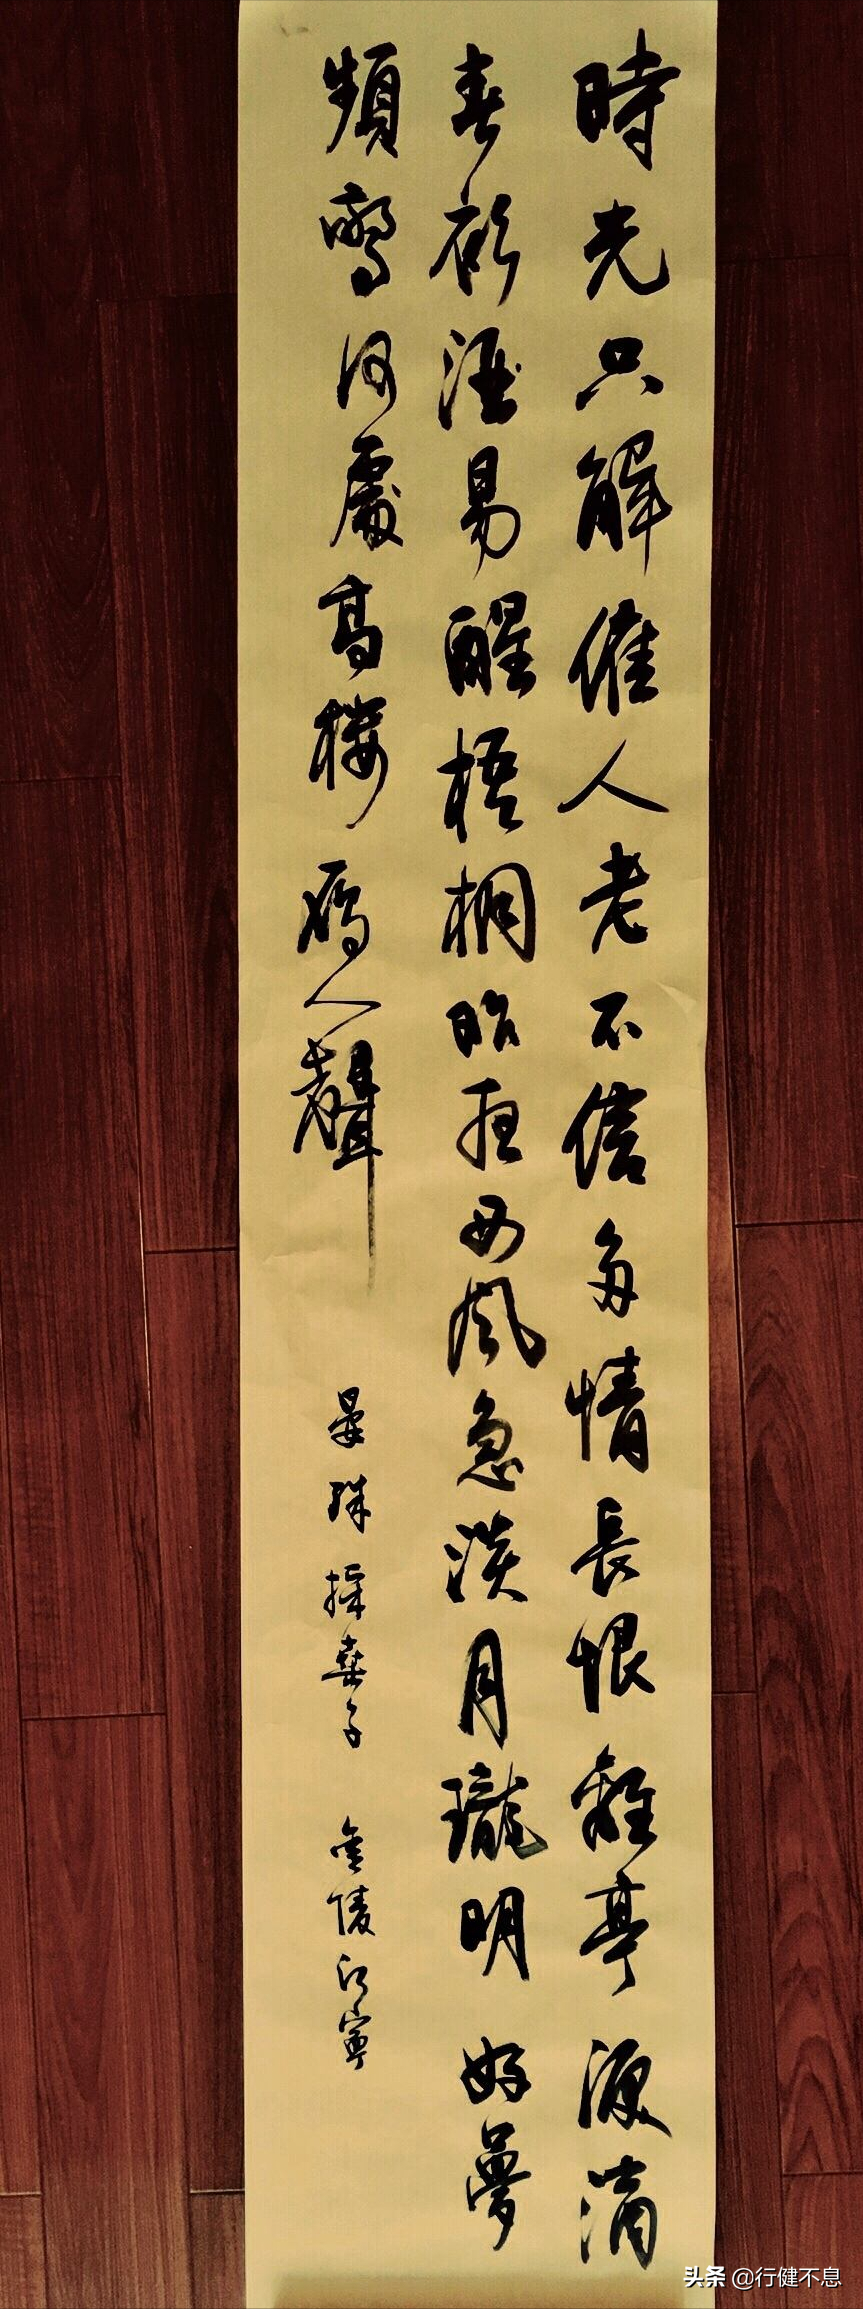 時光只解催人老不信多情長恨離亭淚滴
春衫酒易醒梧桐昨夜西風急淡月瓏明好夢
頻驚何處高樓雁人聲
晏殊採桑子 金陵江寧
头条 @行健不息